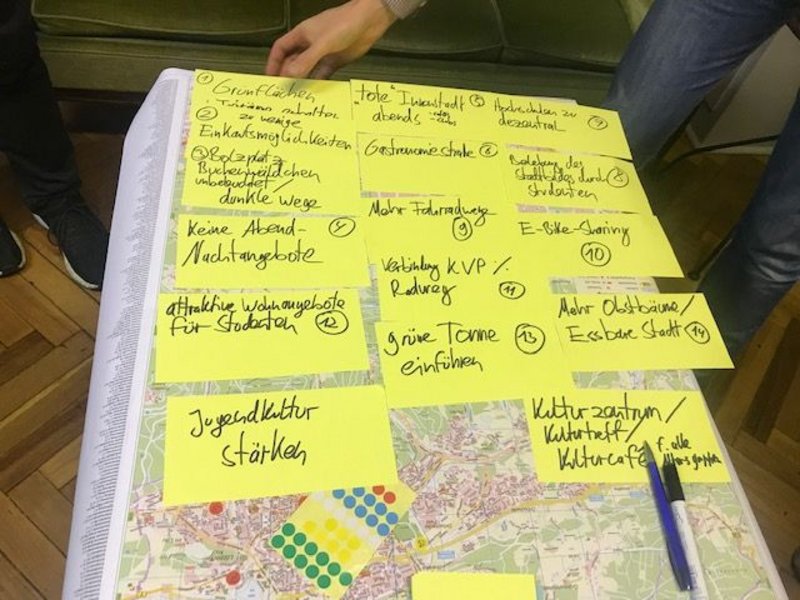 1 Grünflächen
2 Einkaufsmöglichkeiten
zu wenige
3 Bolzplatz
Buchenwäldchen
unbeleuchtet /
dunkle Wege
4 Keine Abend-
Nachtangebote
"tote" Innenstadt 5
abends
Gastronomiestraße 6
Hochschulen zu
dezentral 7
Belebung des
Stadtbildes durch 8
Studenten
Mehr Fahrradwege
9
E-Bike-Sharing
10
Verbindung KVP %
Radweg 11
attraktive Wohnangebote
für Studenten 12
grüne Tonne 13
einführen
Mehr Obstbäume/
Essbare Stadt 14
Jugendkultur
stärken
Kulturzentrum/
Kulturtreff/
Kulturcafé f. alle
Altersgruppen